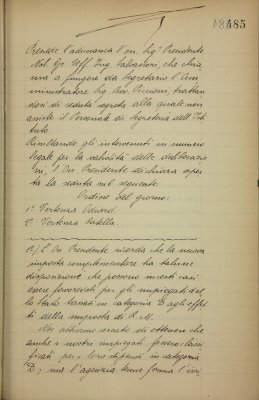 485
Presiede l'adunanza l'on. Sig. Presidente
Nob. Gr. Uff. Ing. Salvadori, che chia
ma a fungere da Segretario l'Am
ministratore Sig. Rag. trattan
dosi di seduta segreta alla quale non
assiste il Personale di Segreteria dell'Isti
tuto.
Risultando gli intervenuti in numero
legale per la validità delle deliberazio
ni, l'On. Presidente dichiara aper
ta la seduta sul seguente
Ordine del giorno:
1º Vertenza
2º Vertenza
1º) L'On. Presidente ricorda che la nuova
imposta complementare ha talune
disposizioni che possono in certi casi
essere favorevoli per gli impiegati del
lo Stato tassati in categoria D agli effet
ti della imposta di R. M.
Noi abbiamo cercato di ottenere che
anche i nostri impiegati fossero classi
ficati per i loro stipendi in categoria
D; ma l'agenzia tenne ferma l'iscri